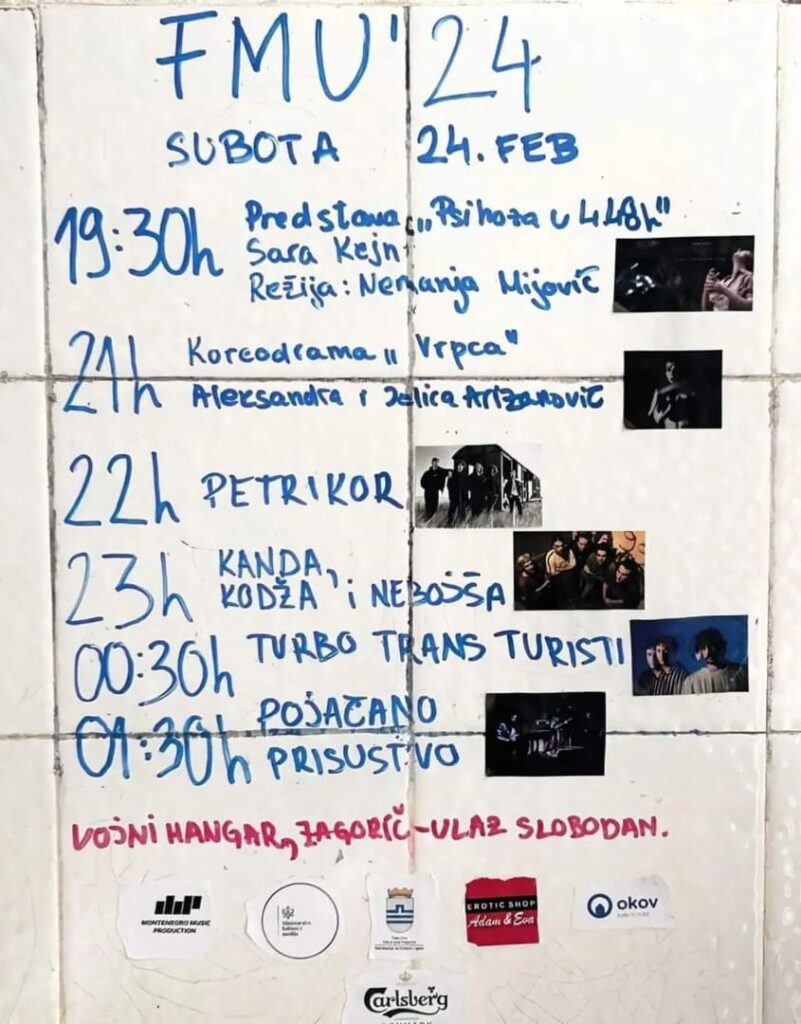 FMU'24
SUBOTA 24. FEB
19:30h Predstava „Psihoza u 4.48h"
Sara Kejn
Režija: Nemanja Mijović
21h Koreodrama „Vrpca"
Aleksandra i Jelica Arizanović
22h PETRIKOR
23h KANDA,
KODŽA i NEBOJŠA
00:30h TURBO TRANS TURISTI
01:30h POJAČANO
PRISUSTVO
VOJNI HANGAR, ZAGORIČ-ULAZ SLOBODAN.
MONTENEGRO MUSIC
PRODUCTION
Ministarstvo
kulture i
medija
EROTIC SHOP
Adam & Eva
okov
Carlsberg